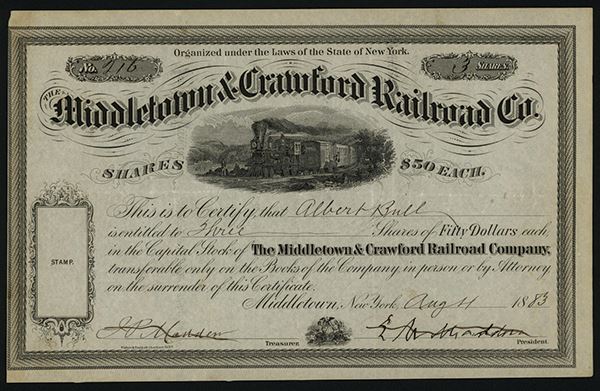 Organized under the Laws of the State of New York.
No. 716
3 SHARES
THE
Middletown & Crawford Railroad Co.
SHARES $50 EACH.
This is to Certify, that Albert Bull
is entitled to Three Shares of Fifty Dollars each
in the Capital Stock of The Middletown & Crawford Railroad Company,
transferable only on the Books of the Company in person or by Attorney
on the surrender of this Certificate.
STAMP.
Middletown, New York, Aug 11 1883
Madden
Treasurer.
E. M. Madden
President.